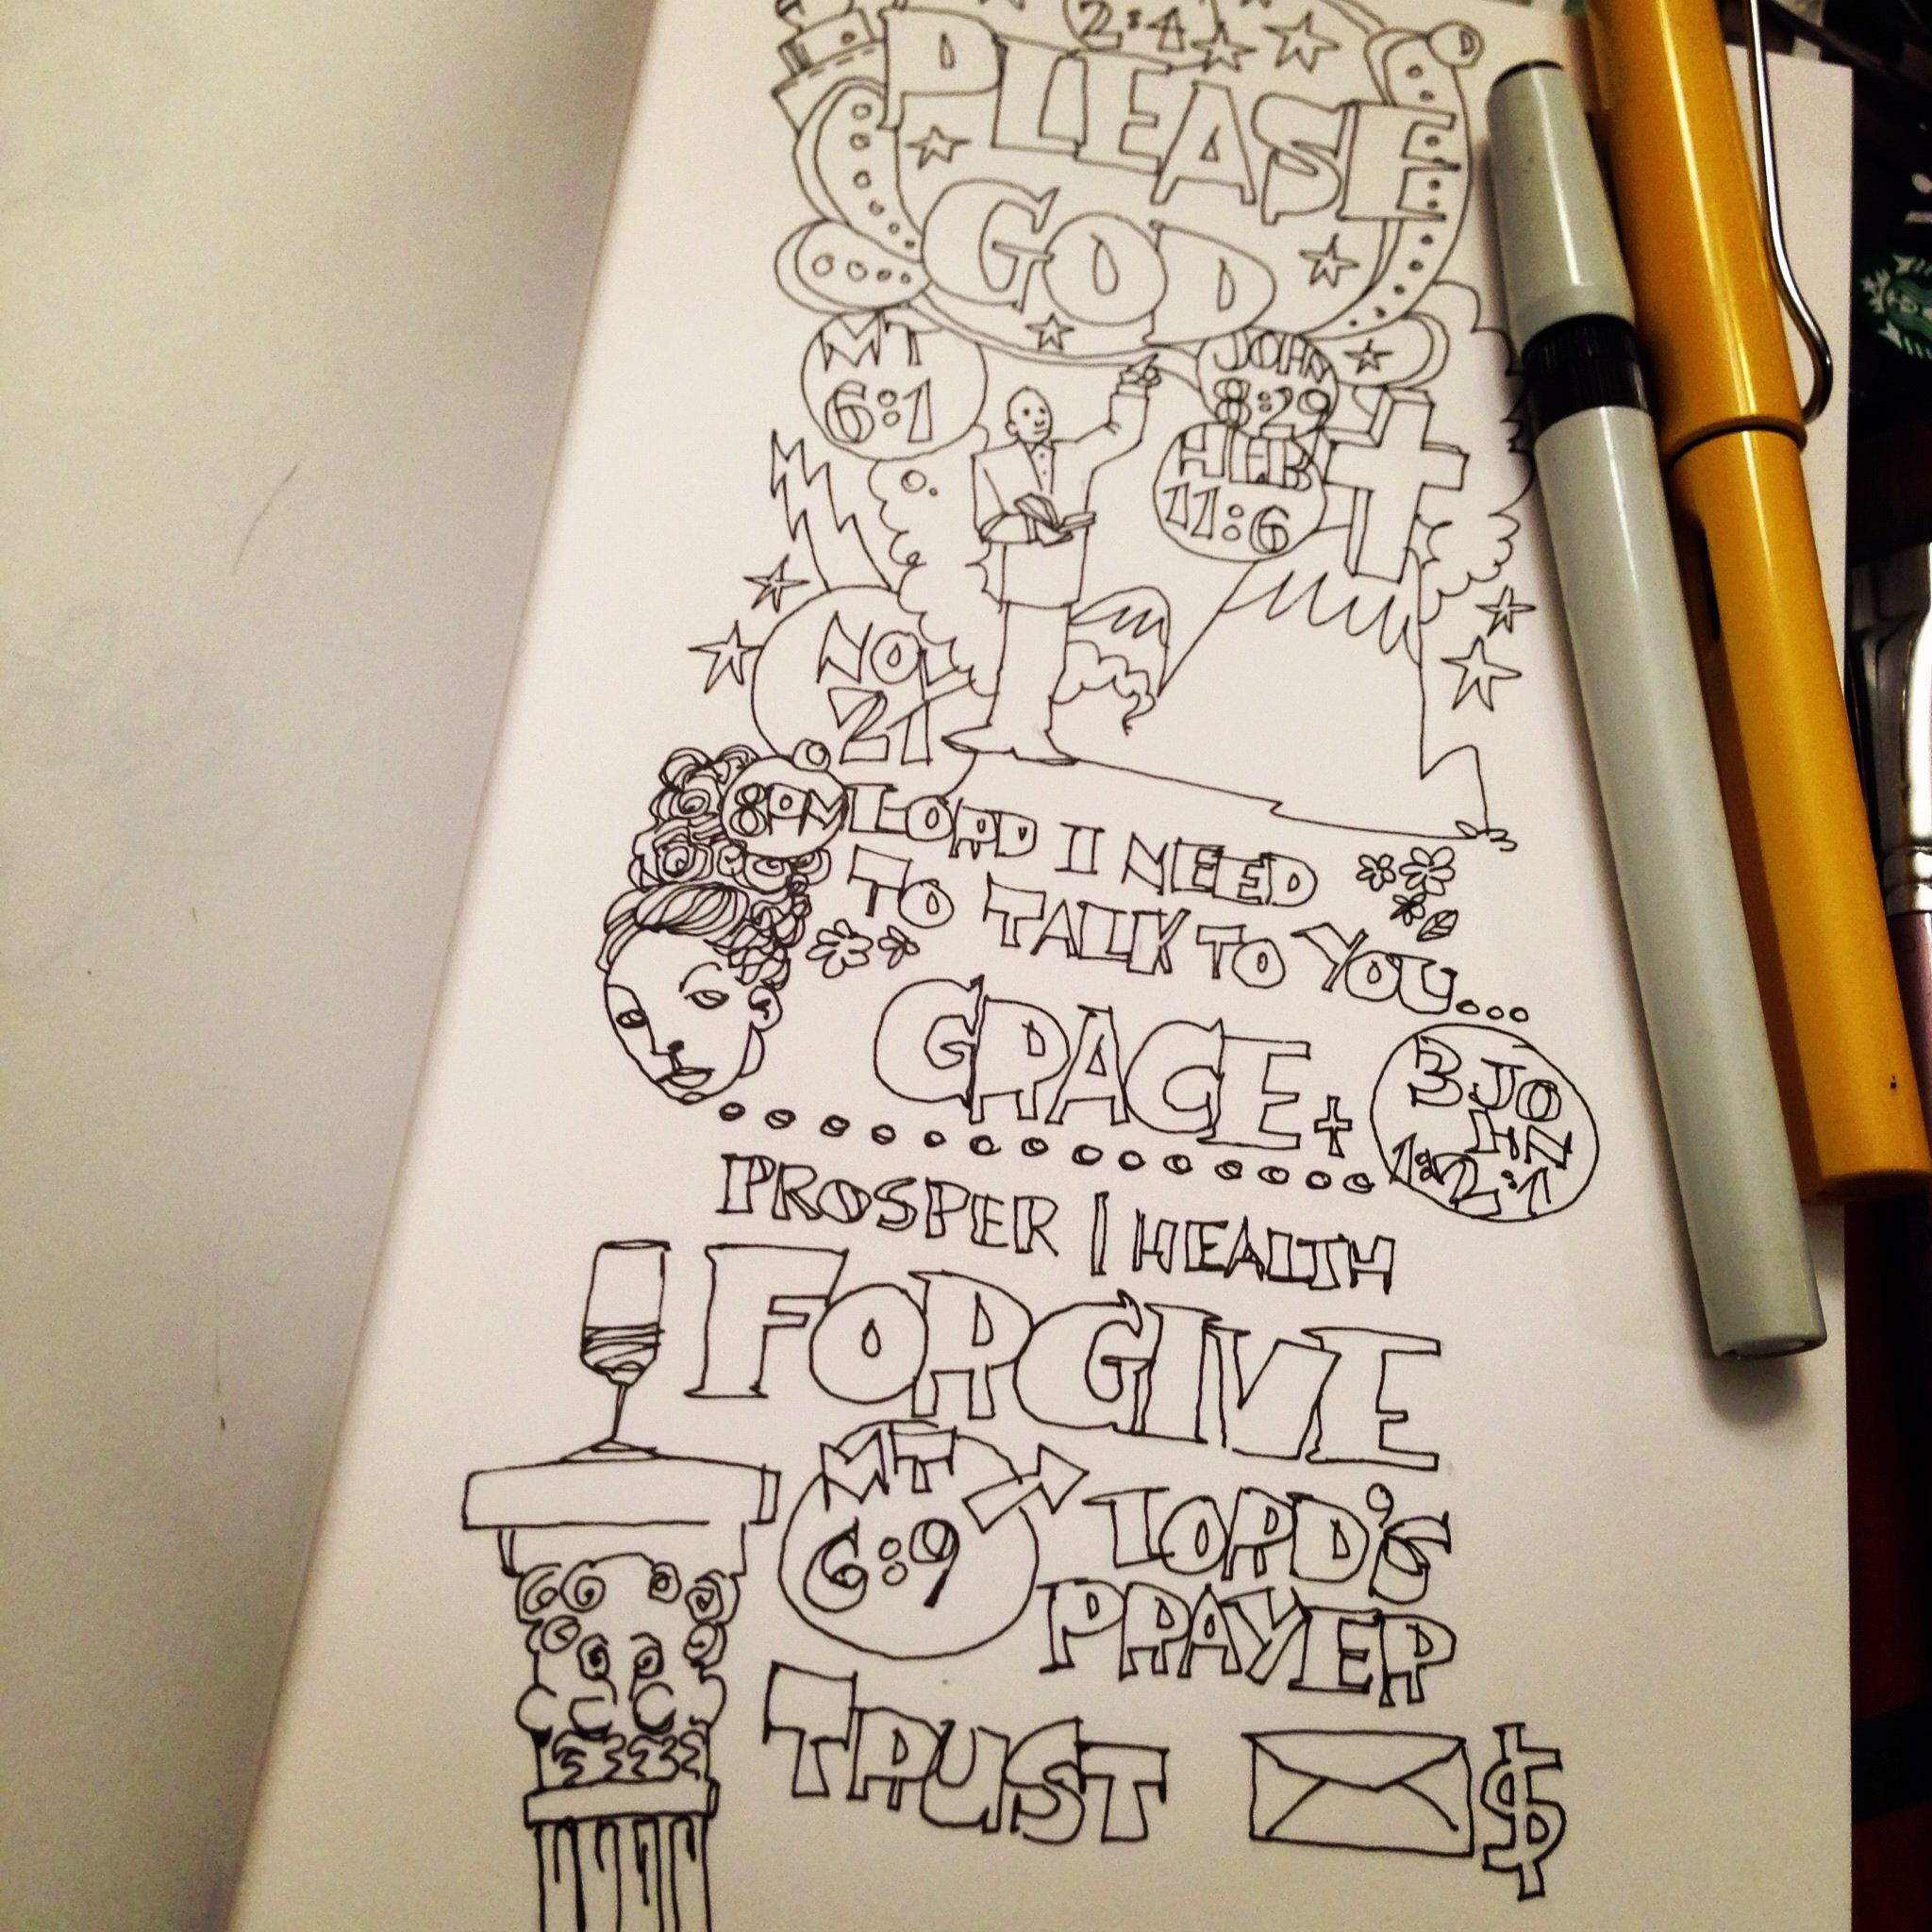 2:4
PLEASE
GOD
MT
6:1
JOHN
8:29
HEB
11:6
NOV
21
8PM
LORD I NEED
TO TALK TO YOU...
GRACE +
3 JO
HN
1:2:1
PROSPER | HEALTH
FORGIVE
MT
6:9
LORD'S
PRAYER
TRUST $